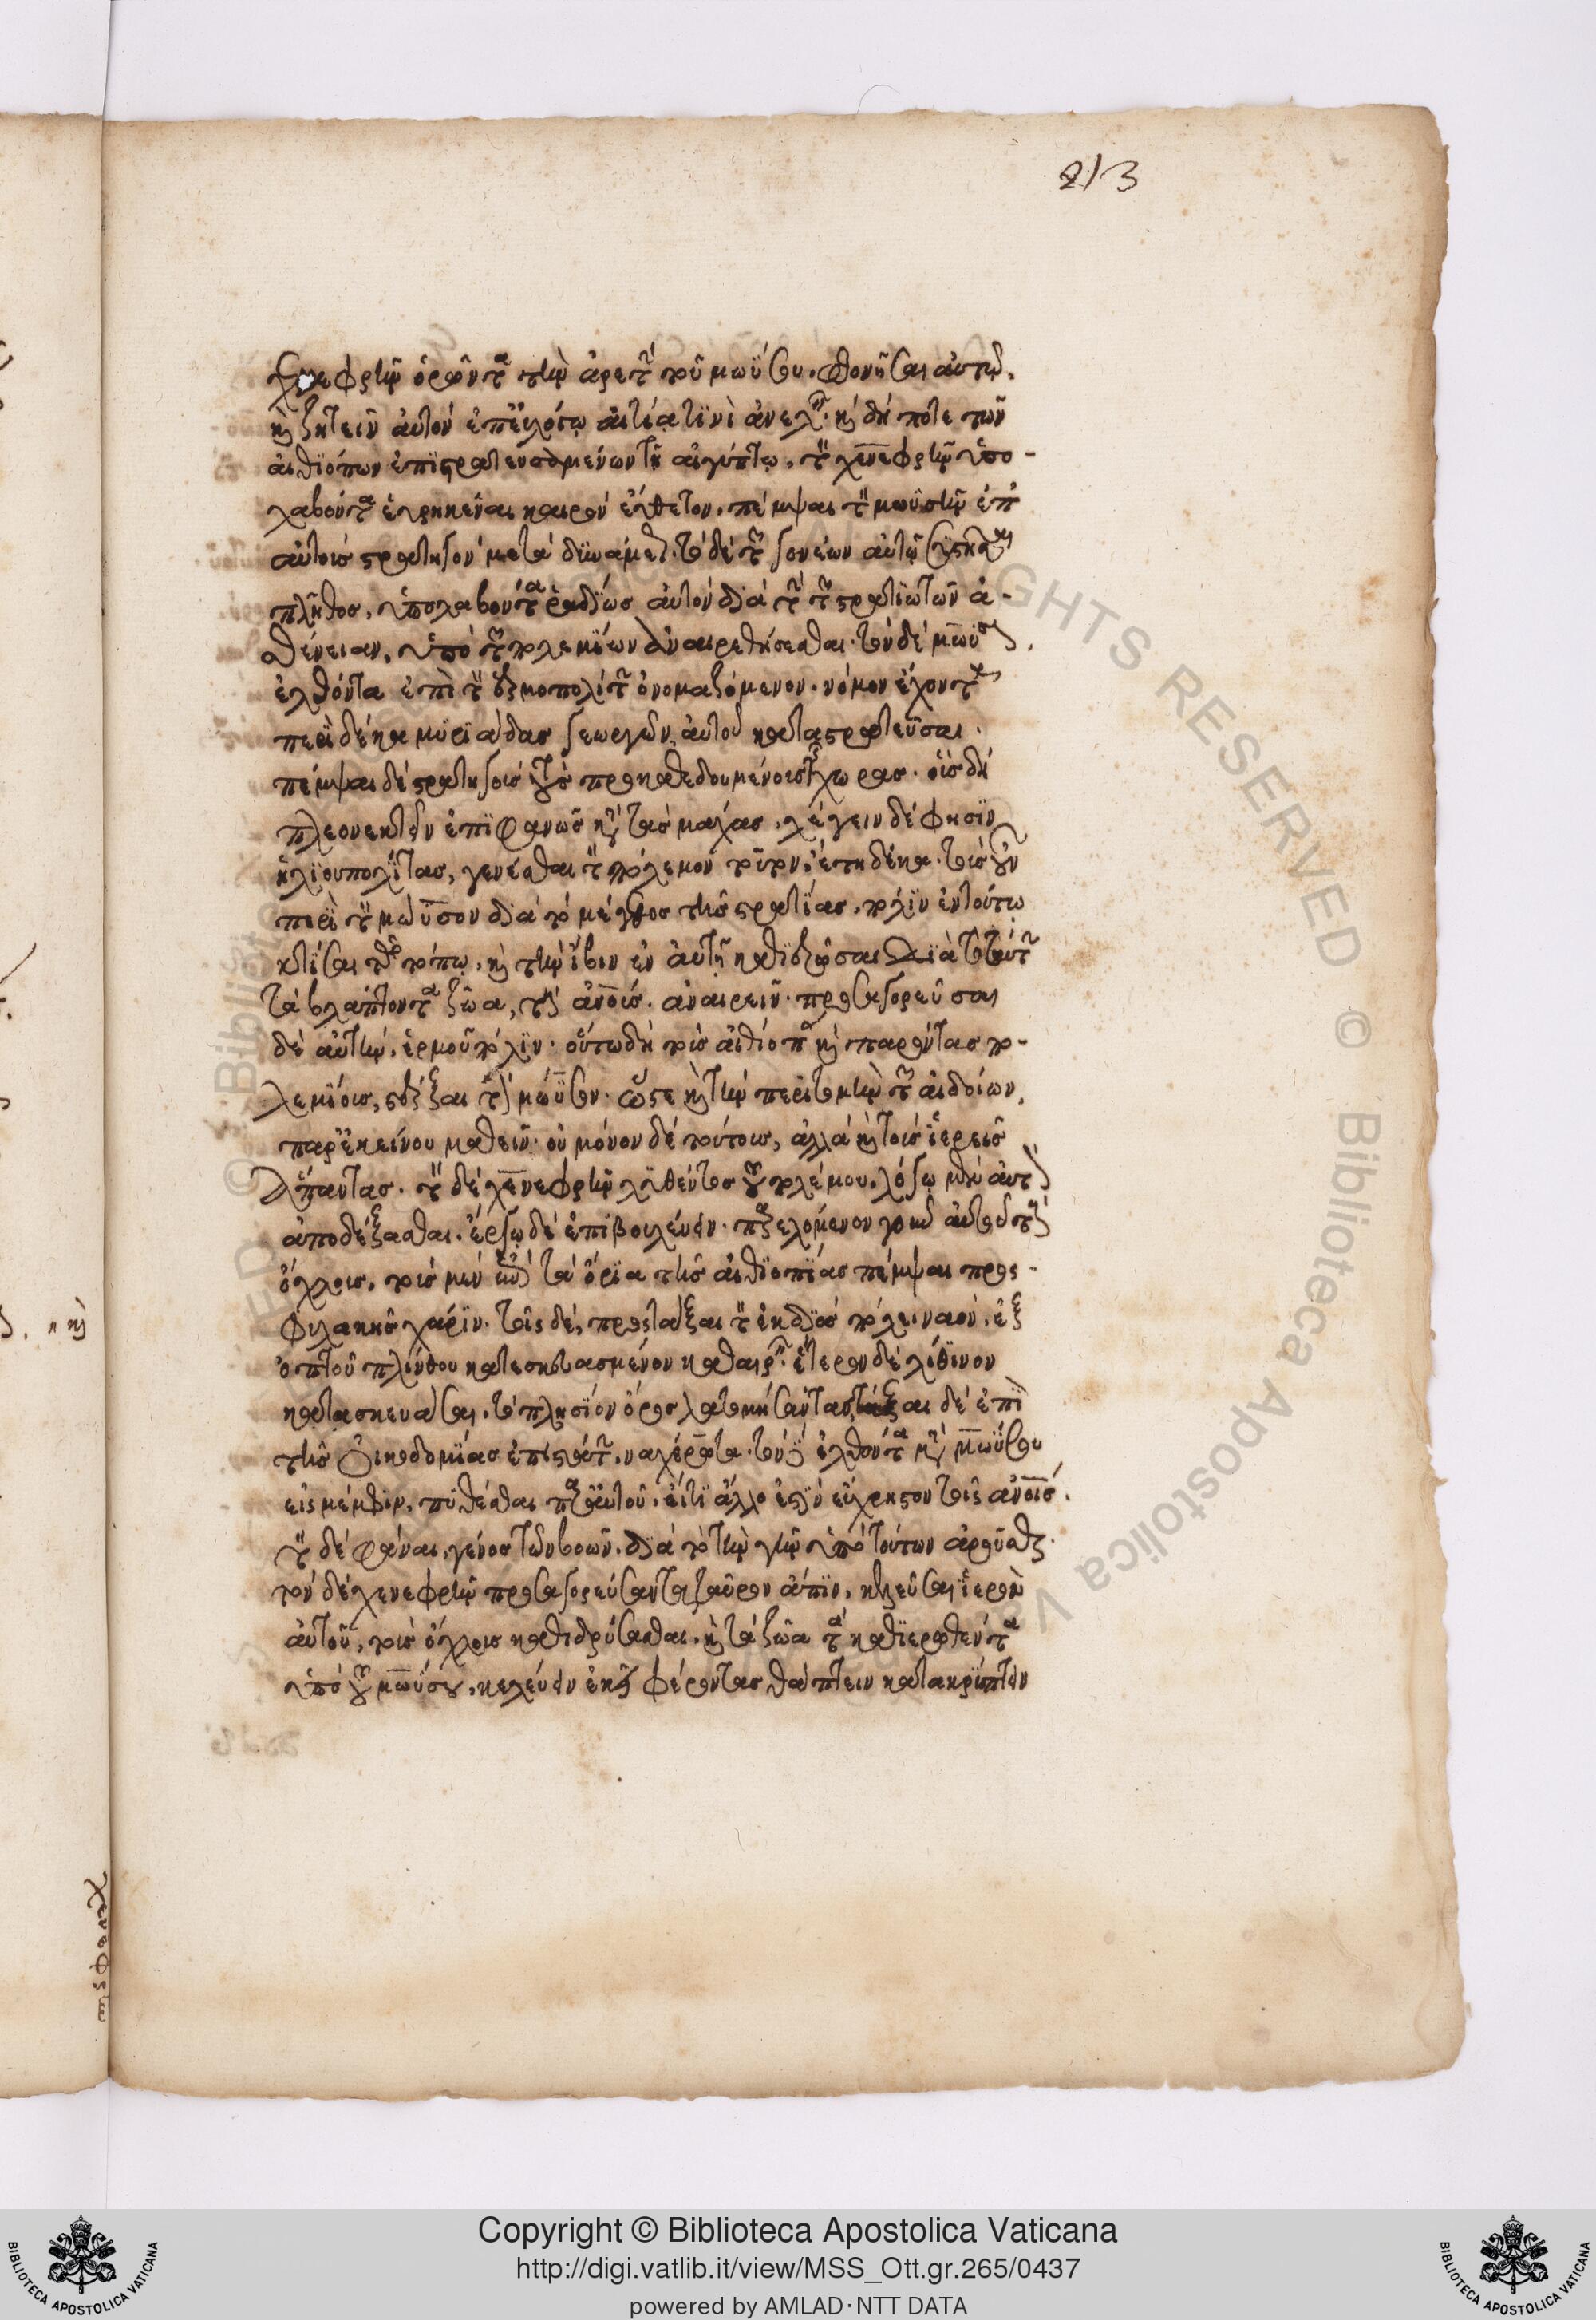 213
χενεφρὴν ὁρῶντα τὴν ἀρετὴν τοῦ μωϋσου. φθονῆσαι αὐτῷ.
καὶ ζητεῖν αὐτὸν ἐπ' εὐλόγῳ αἰτίᾳ τινὶ ἀνελεῖν. καὶ δή ποτε τῶν
αἰθιόπων ἐπιστρατευσομένων τῇ αἰγύπτῳ, τὸν χενεφρὴν ὑπο-
λαβόντα εὑρηκέναι καιρὸν εὔθετον. πέμψαι τὸν μωϋσὴν ἐπ'
αὐτοὺς στρατηγὸν μετὰ δυνάμεως. τὸ δὲ τῶν γονέων αὐτῷ συστῆσαι
πλῆθος, ὑπολαβόντα ῥαδίως αὐτὸν διὰ τὴν τῶν στρατιωτῶν ἀ-
σθένειαν, ὑπὸ τῶν πολεμίων ἀναιρεθήσεσθαι. τὸν δὲ μωϋσον
ἐλθόντα ἐπὶ τὸν ἑρμοπολίτην ὀνομαζόμενον. νόμον ἔχοντα
περὶ δέκα μυριάδας γεωργῶν, αὐτοῦ καταστρατεῦσαι.
πέμψαι δὲ στρατηγοὺς τοὺς προκαθεδουμένους τῆς χώρας. οὓς δὴ
πλεονεκτεῖν ἐπιφανῶς κατὰ τὰς μάχας. λέγειν δέ φησιν
ἡλιουπολίτας, γενέσθαι τὸν πόλεμον τοῦτον, ἔτη δέκα. τοὺς οὖν
περὶ τὸν μώϋσον διὰ τὸ μέγεθος τῆς στρατιᾶς, πόλιν ἐν τούτῳ
κτίσαι τῷ τόπῳ. καὶ τὴν ἶβιν ἐν αὐτῇ καθιερῶσαι διὰ τὸ ταύτην
τὰ βλάπτοντα ζῶα, τοὺς ἀνους. ἀναιρεῖν. προσαγορεῦσαι
δὲ αὐτὴν, ἑρμοῦ πόλιν. οὕτω δὴ τοὺς αἰθίοπας καὶ παρόντας πο-
λεμίους, στέρξαι τὸν μώϋσον. ὥστε καὶ τὴν περιτομὴν τῶν αἰδοίων,
παρ' ἐκείνου μαθεῖν. οὐ μόνον δὲ τούτους, ἀλλὰ καὶ τοὺς ἱερεῖς
ἅπαντας. τὸν δὲ χενεφρὴν λυθέντος τοῦ πολέμου. λόγῳ μὲν αὐτὸν
ἀποδέξασθαι. ἔργῳ δὲ ἐπιβουλεύειν. παρελόμενον γοῦν αὐτοῦ τοὺς
ὄχλους, τοὺς μὲν ἐπὶ τὰ ὅρια τῆς αἰθιοπίας πέμψαι προ-
φυλακῆς χάριν. τοῖς δὲ, προστάξαι τὸν ἐν διὸς πόλει ναὸν, ἐξ
ὀπτοῦ πλίνθου κατεσκευασμένον καθαιρεῖν. ἕτερον δὲ λίθινον
κατασκευάσαι. τὸ πλησίον ὄρος λατομήσαντας, τάξαι δὲ ἐπὶ
τῆς οἰκοδομίας ἐπιστάτην, ναχέρωτα. τὸν δὲ ἐλθόντα μετὰ μωϋσου
εἰς μέμφιν, πυθέσθαι παρ' αὐτοῦ, εἴ τι ἄλλο ἐστὶν εὔχρηστον τοῖς ἀνοις.
τὸν δὲ φάναι, γένος τῶν βοῶν. διὰ τὸ τὴν γῆν ἀπὸ τούτων ἀροῦσθαι.
τὸν δὲ χενεφρὴν προσαγορεύσαντα ταῦρον ἄπιν, κελεῦσαι ἱερὸν
αὐτοῦ, τοὺς ὄχλους καθιδρύσασθαι. καὶ τὰ ζῶα τὰ καθιερωθέντα
ὑπὸ τοῦ μωύσου, κελεύειν ἐκεῖ φέροντας θάπτειν κατακρύπτειν
Copyright © Biblioteca Apostolica Vaticana
http://digi.vatlib.it/view/MSS_Ott.gr.265/0437
powered by AMLAD·NTT DATA